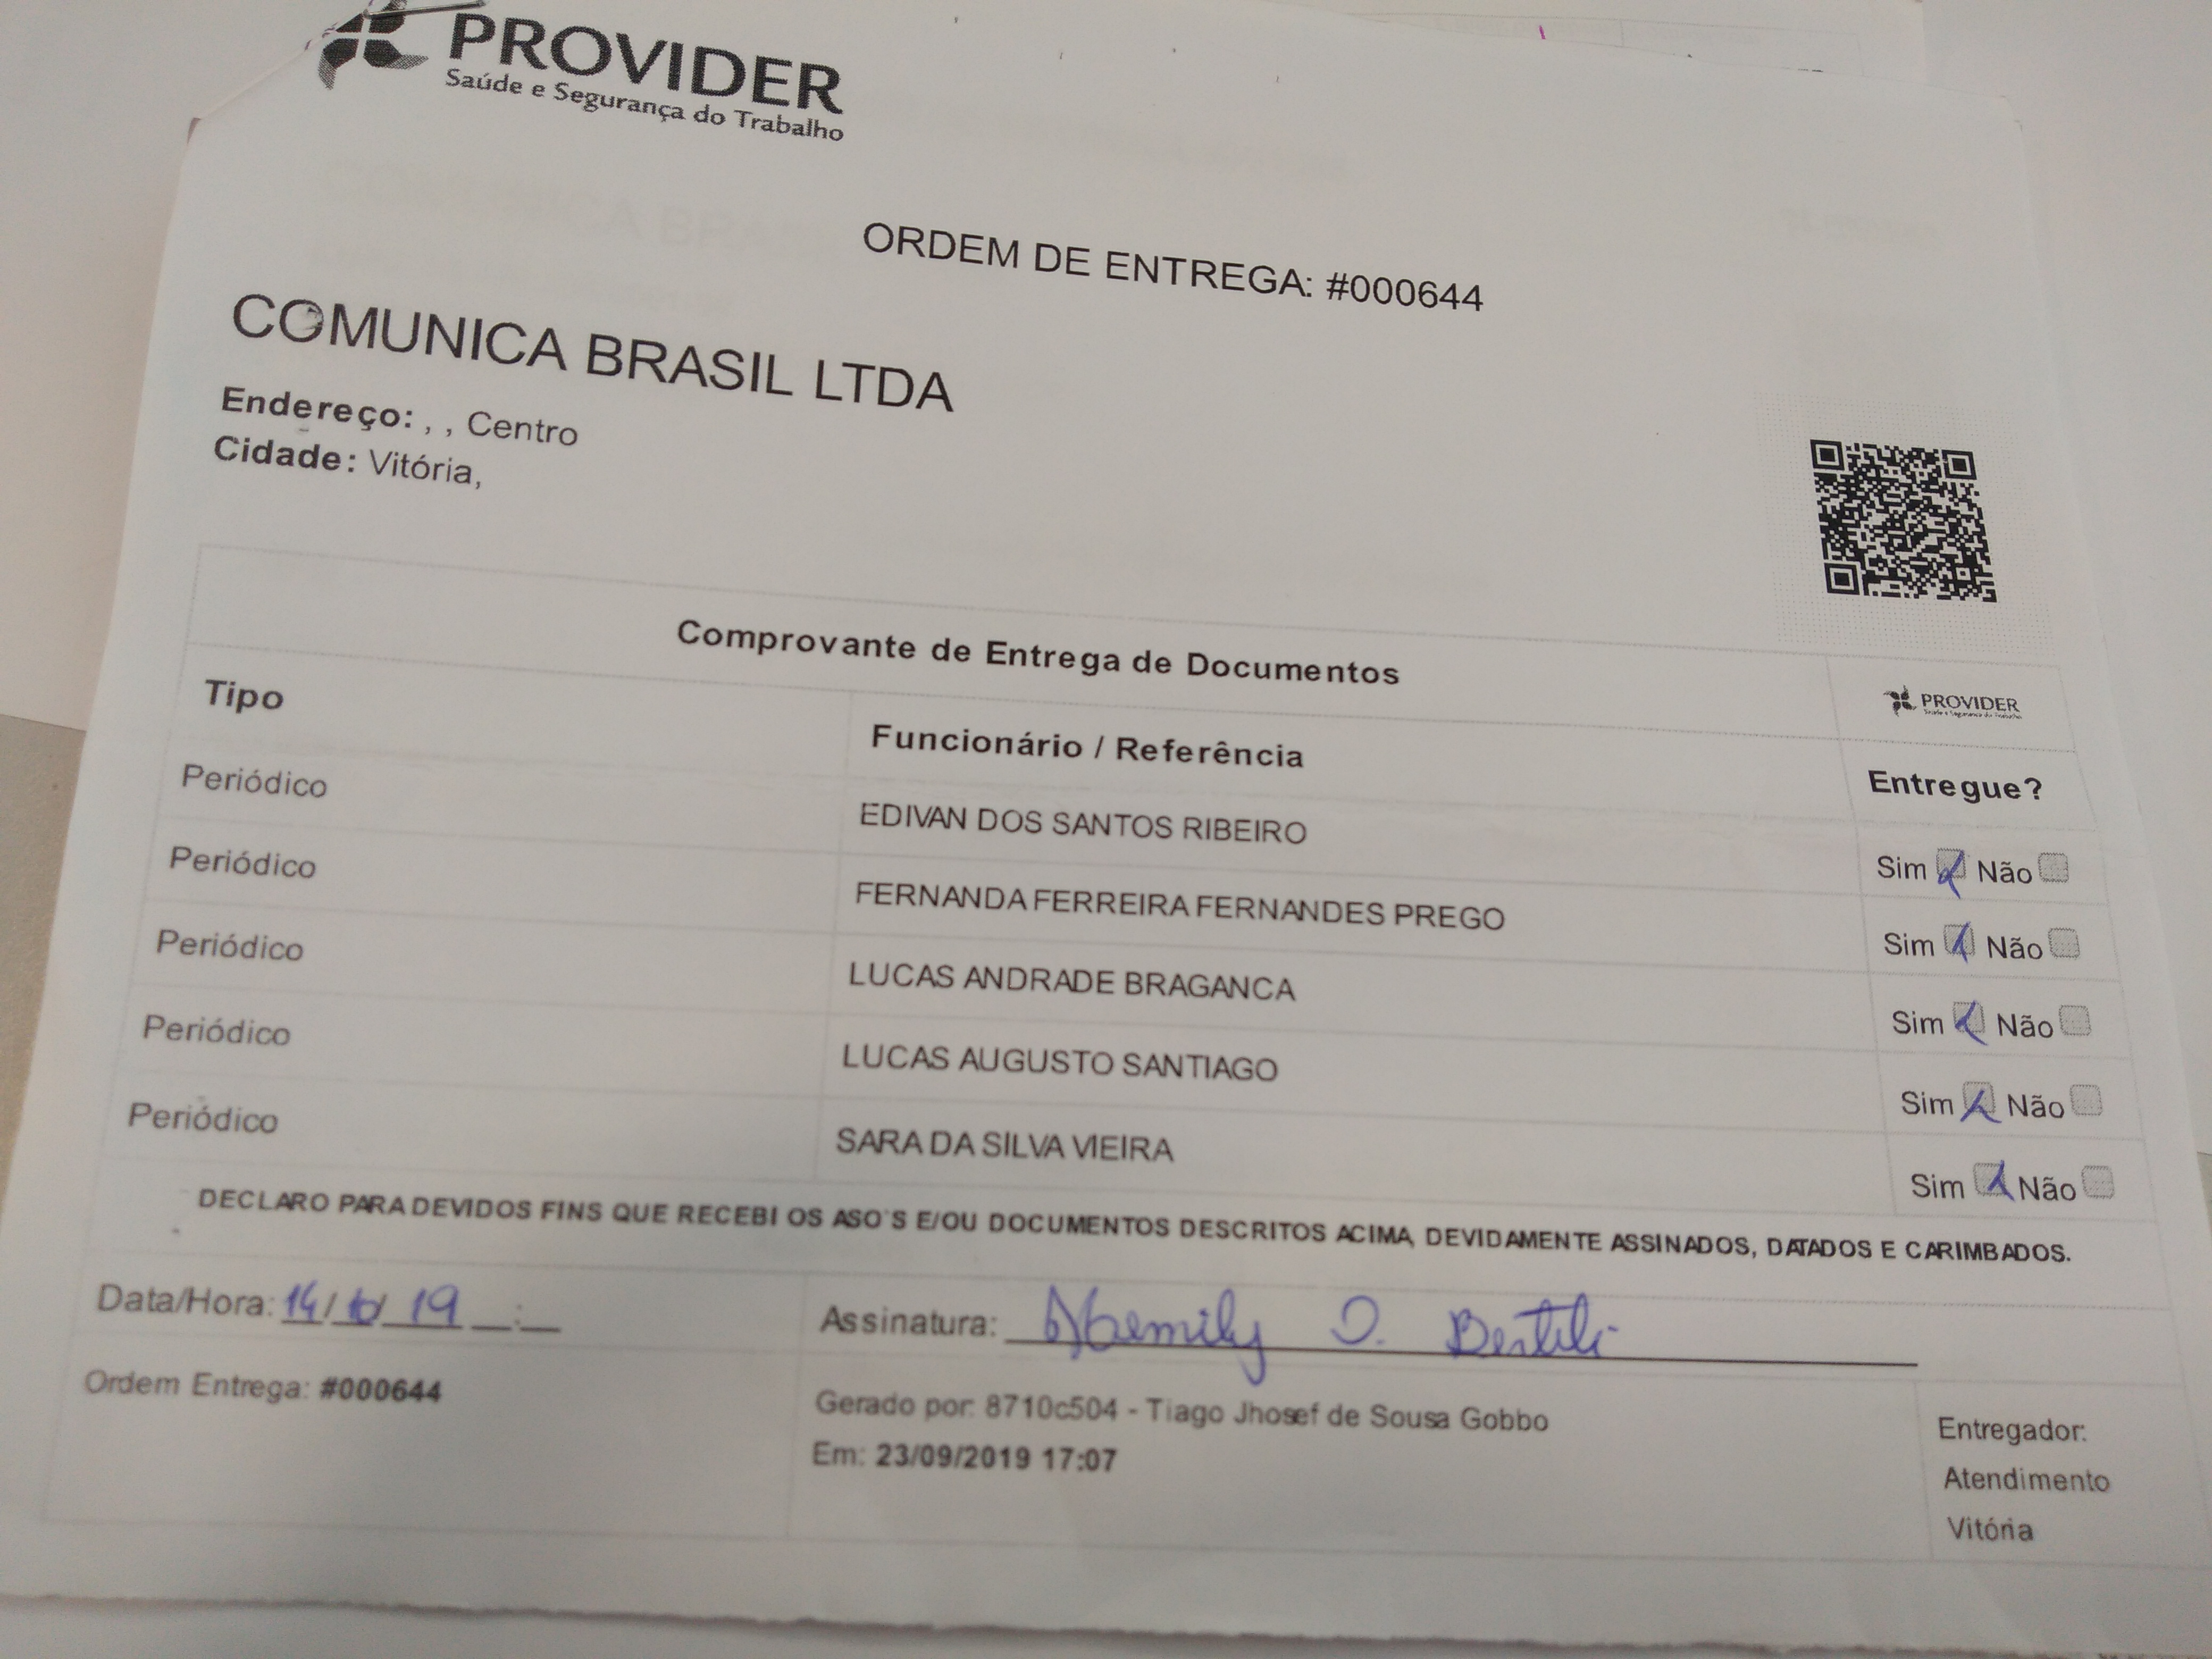 PROVIDER
Saúde e Segurança do Trabalho
ORDEM DE ENTREGA: #000644
COMUNICA BRASIL LTDA
Endereço: , , Centro
Cidade: Vitória,
Comprovante de Entrega de Documentos
PROVIDER
Saúde e Segurança do Trabalho
Tipo Funcionário / Referência Entregue?
Periódico EDIVAN DOS SANTOS RIBEIRO Sim Não
Periódico FERNANDA FERREIRA FERNANDES PREGO Sim Não
Periódico LUCAS ANDRADE BRAGANCA Sim Não
Periódico LUCAS AUGUSTO SANTIAGO Sim Não
Periódico SARA DA SILVA VIEIRA Sim Não
DECLARO PARA DEVIDOS FINS QUE RECEBI OS ASO'S E/OU DOCUMENTOS DESCRITOS ACIMA, DEVIDAMENTE ASSINADOS, DATADOS E CARIMBADOS.
Data/Hora: 14/10/19 __:__ Assinatura: O.
Ordem Entrega: #000644
Gerado por: 8710c504 - Tiago Jhosef de Sousa Gobbo
Em: 23/09/2019 17:07
Entregador:
Atendimento
Vitória